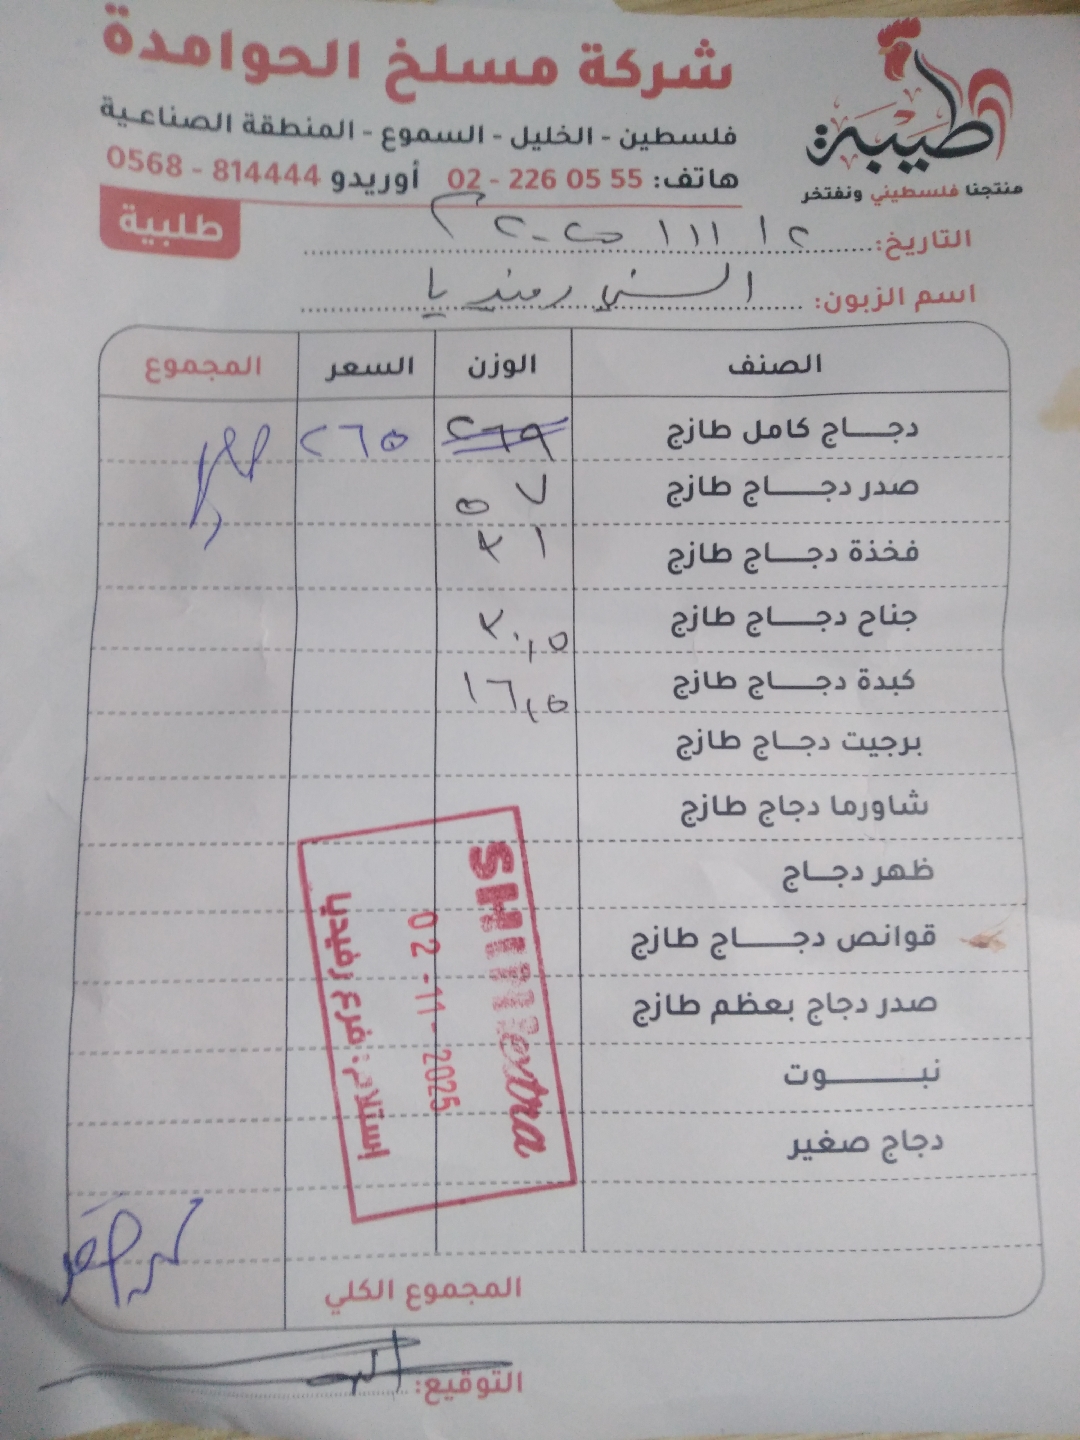 شركة مسلخ الحوامدة
فلسطين - الخليل - السموع - المنطقة الصناعية
هاتف: 55 05 226 - 02 أوريدو 814444 - 0568
طيبة
منتجنا فلسطيني ونفتخر
طلبية
التاريخ:
اسم الزبون: السني رفيديا
الصنف الوزن السعر المجموع
دجاج كامل طازج ٢٦٩ ٢٦٥
صدر دجاج طازج ٥٧
فخذة دجاج طازج ٣١
جناح دجاج طازج ٣٠,٥
كبدة دجاج طازج ١٦,٥
برجيت دجاج طازج
شاورما دجاج طازج
ظهر دجاج
قوانص دجاج طازج
صدر دجاج بعظم طازج
نبوت
دجاج صغير
SHINI extra
02-11-2025
إستلام: فرع رفيديا
المجموع الكلي
التوقيع: